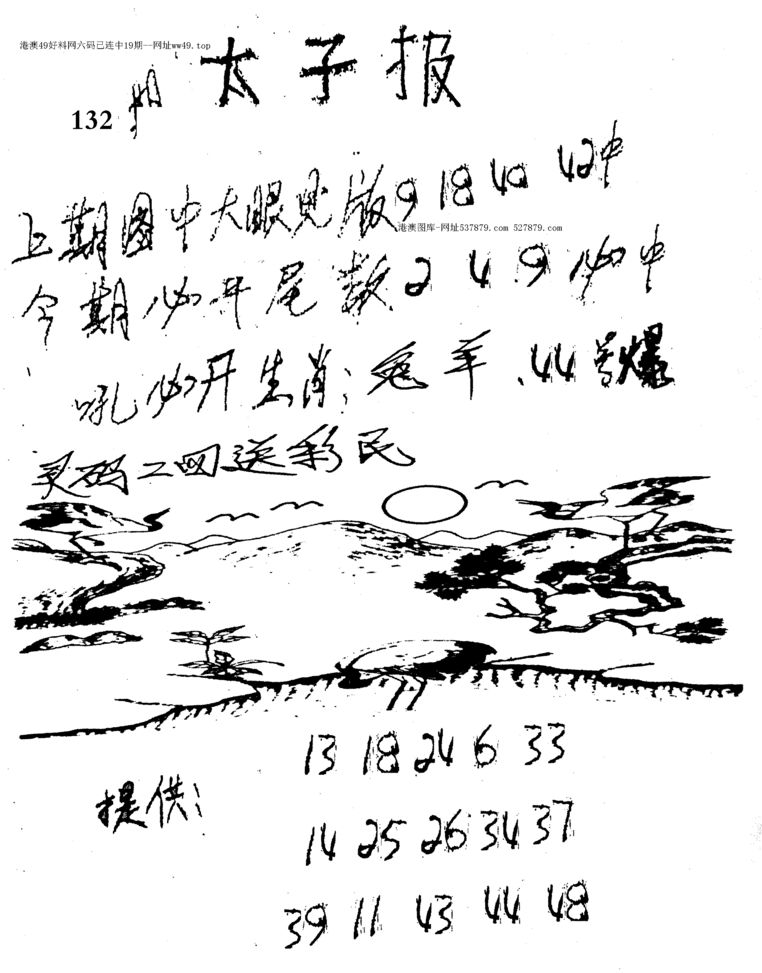 港澳49好料网六码已连中19期--网址ww49.top
太子报
132期
上期图中大眼见版9 18 40 42中
港澳图库-网址537879.com 527879.com
今期必开尾数2 4 9必中
吼必开生肖:兔羊.44号爆
灵码二四送彩民
13 18 24 6 33
提供:
14 25 26 34 37
39 11 43 44 48